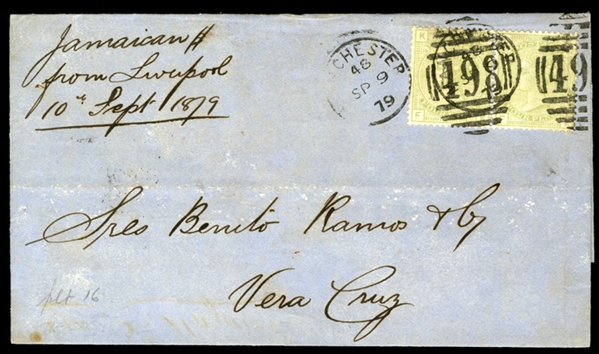 Jamaican //
from Liverpool
10th Sept 1879
CHESTER
48
SP 9
79
K
F
498
49
Sres Benito Ramos & Cy
Vera Cruz
plt 16